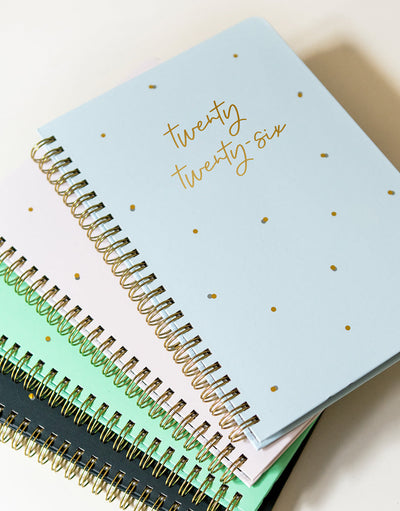 twenty
twenty-six